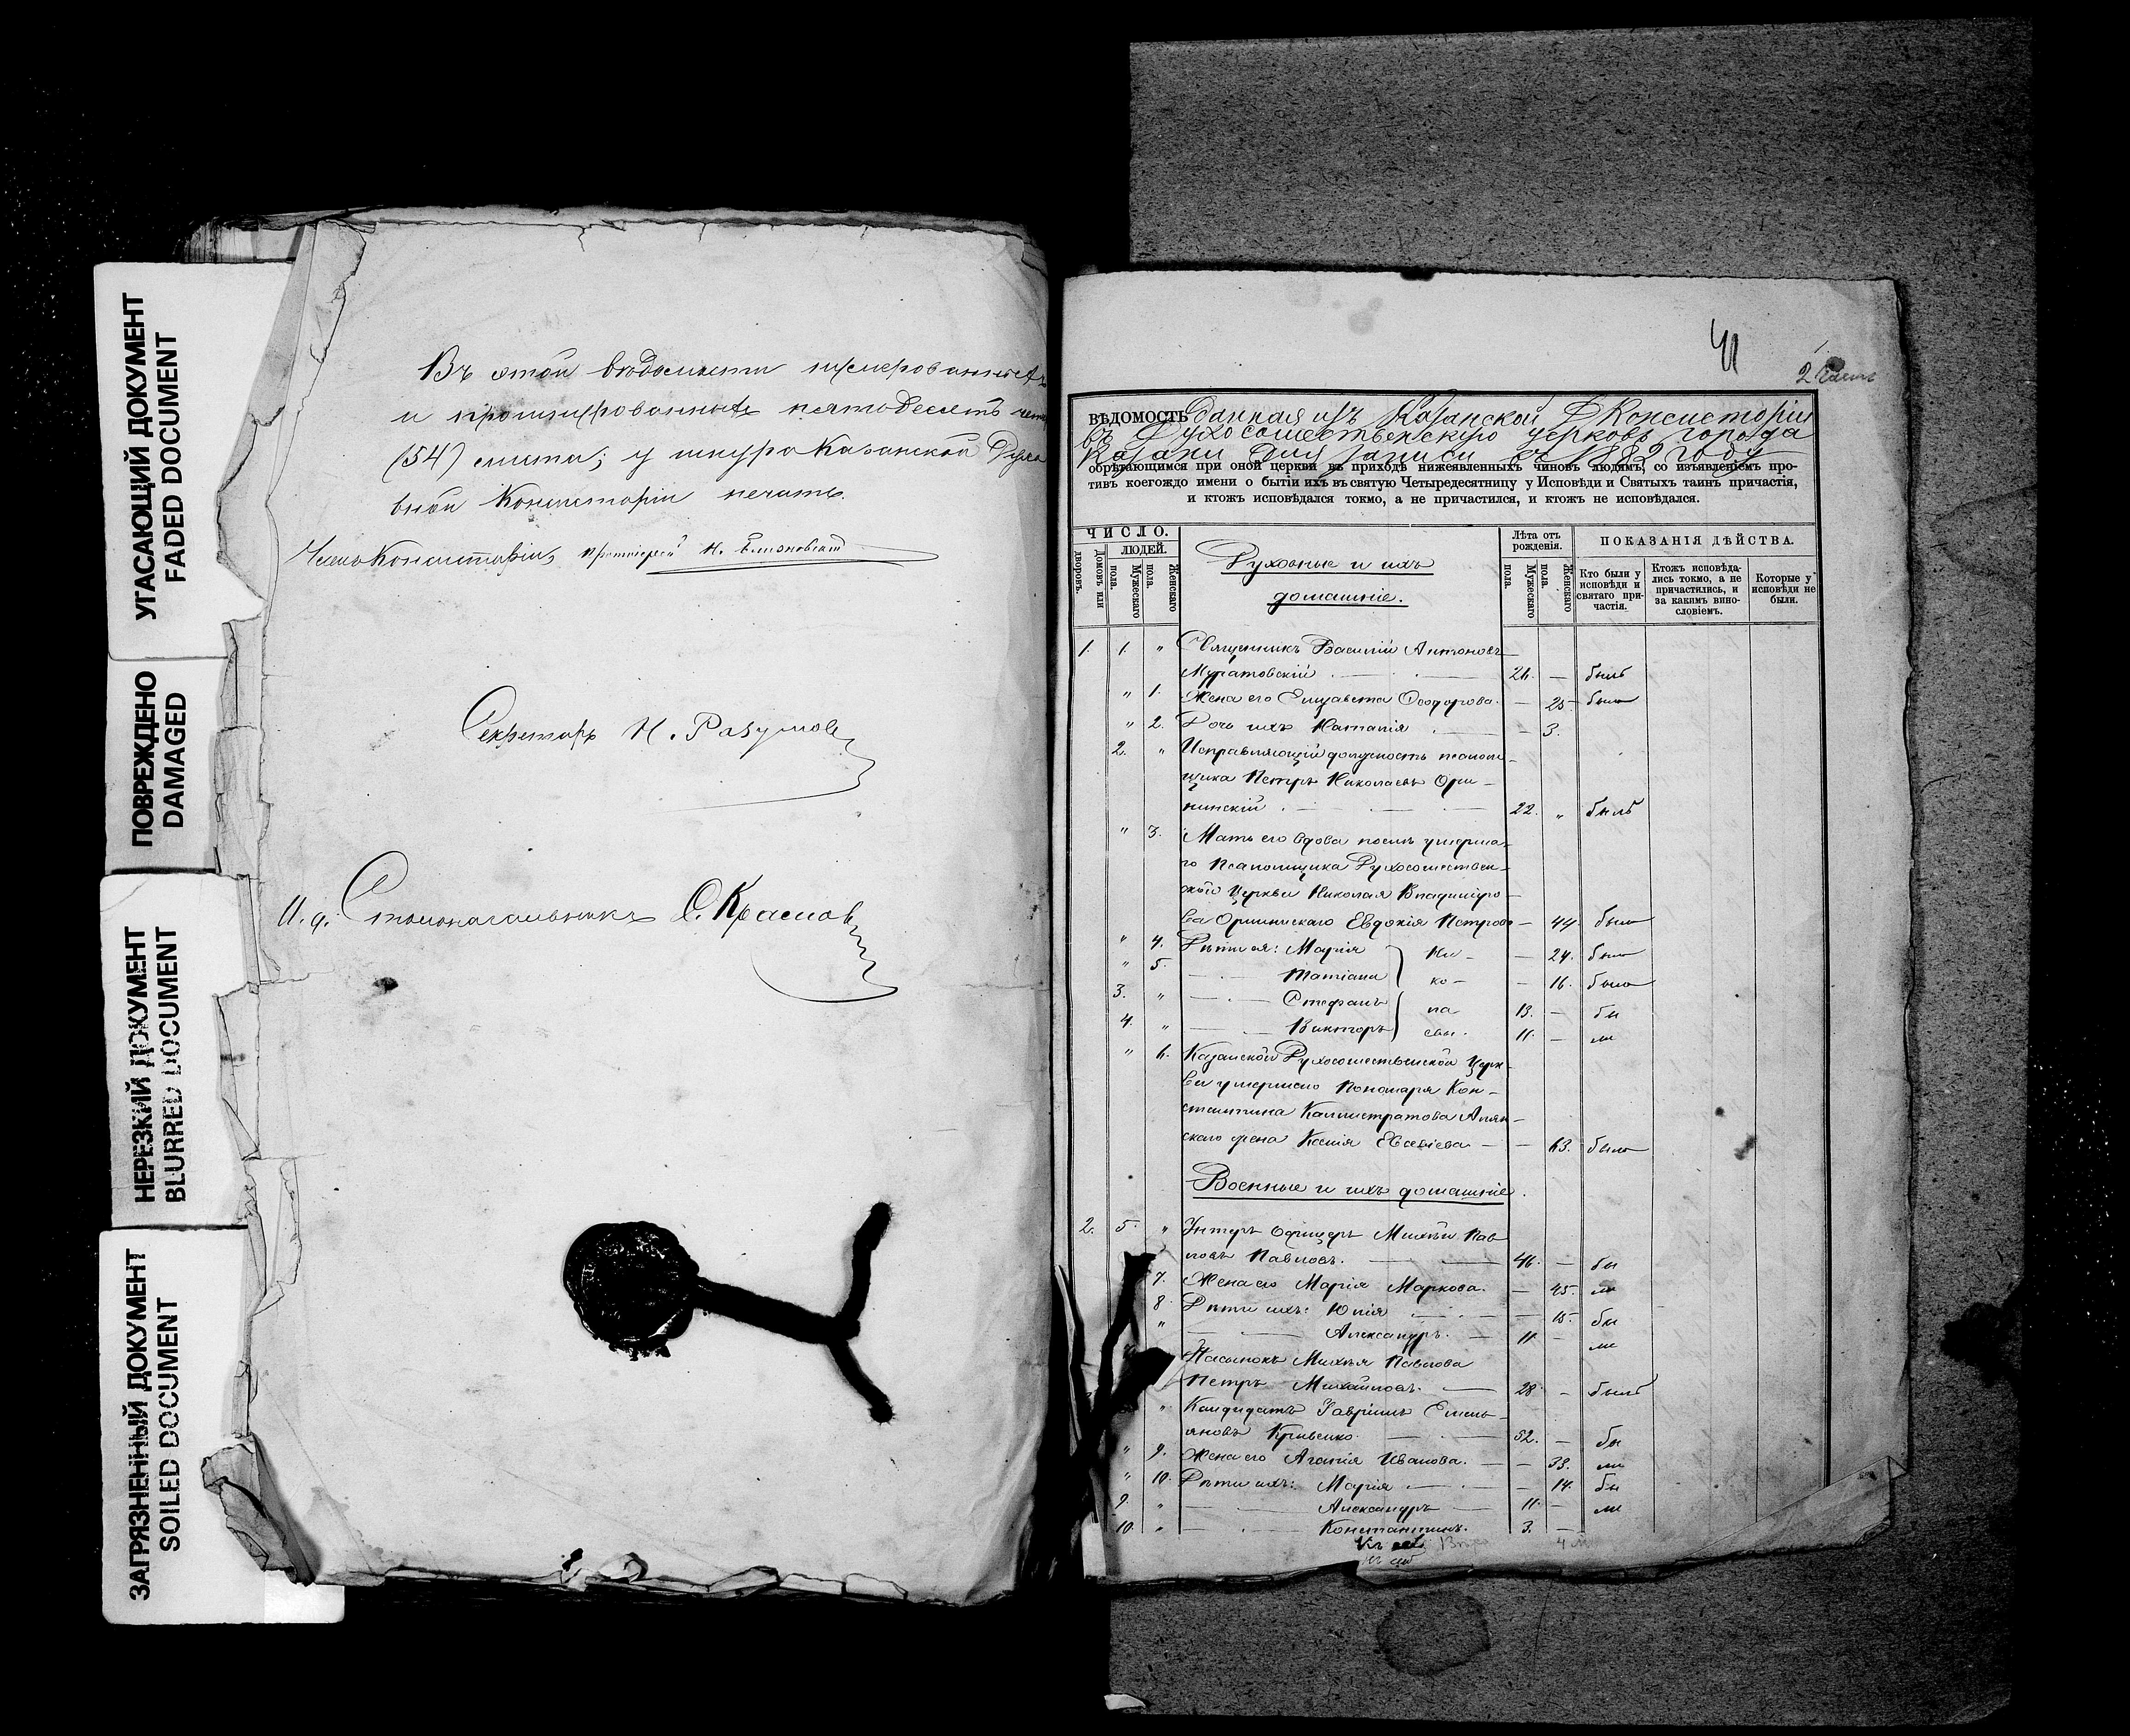 УГАСАЮЩИЙ ДОКУМЕНТ
FADED DOCUMENT
ПОВРЕЖДЕНО
DAMAGED
НЕРЕЗКИЙ ДОКУМЕНТ
BLURRED DOCUMENT
ЗАГРЯЗНЕННЫЙ ДОКУМЕНТ
SOILED DOCUMENT
Въ этой вѣдомости нумерованныхъ
и прошнурованныхъ пятьдесятъ четы
(54) листа; у шнура Казанской Духо
вной Консисторіи печать.
Членъ Консисторіи, Протоіерей Н.
Секретарь Н. Разумов
И. д. Столоначальника С. Краснов
41
2
ВѢДОМОСТЬ Данная изъ Казанской Д Консисторіи
въ Духосошественскую церковь города
Казани для записи въ 1882 году
обрѣтающимся при оной церкви въ приходѣ нижеявленныхъ чиновъ людямъ, со изъявленіемъ про-
тивъ коегождо имени о бытіи ихъ въ святую Четыредесятницу у Исповѣди и Святыхъ таинъ причастія,
и ктожъ исповѣдался токмо, а не причастился, и ктожъ не исповѣдался.
ЧИСЛО.
Домовъ или дворовъ.
ЛЮДЕЙ.
Мужескаго пола.
Женскаго пола.
Духовные и ихъ
домашніе.
Лѣта отъ рожденія.
Мужескаго пола.
Женскаго пола.
ПОКАЗАНІЯ ДѢЙСТВА.
Кто были у исповѣди и святаго причастія.
Ктожъ исповѣдались токмо, а не причастились, и за какимъ винословіемъ.
Которые у исповѣди не были.
1. 1. " Священникъ Василій Антоновъ
Муратовскій 26. — былъ
" 1. Жена его Елизавета Ѳеодорова. — 25 была
" 2. Дочь ихъ Наталія — 3.
2. " Исправляющій должность псаломщика Петръ Николаевъ Ори-
нинскій 22. " былъ
" 3. Мать его вдова послѣ умерша-
го Псаломщика Духосошествен-
ской Церкви Николая Владиміро-
ва Орининскаго Евдокія Петрова — 44. была
" 4. Дѣти ея: Марія Ни- — 24. была
" 5. Татіана ко- — 16. была
3. " Стефанъ ла- 13. — бы
4. " Викторъ евы. 11. — ли
" 6. Казанской Духосошественской Церк-
ви умершаго Пономаря Кон-
стантина Каллистратова
скаго жена Ксенія Евсевіева — 63. была
Военные и ихъ домашніе.
2. 5. " Унтеръ Офицеръ Михаилъ Пав
ловъ Павловъ. 46. — бы
7. Жена его Марія Маркова. — 45. ли
8. Дѣти ихъ: Юлія — 15. бы
" Александръ. 11. — ли
Пасынокъ Михаила Павлова
Петръ Михайловъ. 28. — былъ
" Кандидатъ Гавріилъ Емель-
яновъ Кривенко 52. — бы
" 9. Жена его Агапія Иванова. — 38. ли
" 10. Дѣти ихъ: Марія — 14. бы
9. " Александръ 11. — ли
10. " Константинъ. 3. —